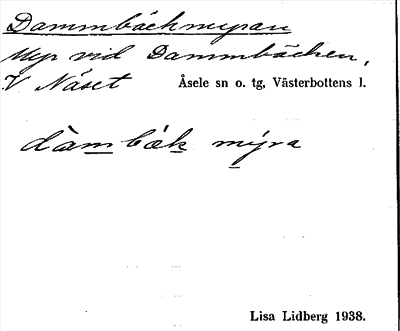 Dammbäckmyran
Myr vid Dammbäcken,
V Näset Åsele sn o. tg, Västerbottens l.
dàmbäk mýra
Lisa Lidberg 1938.